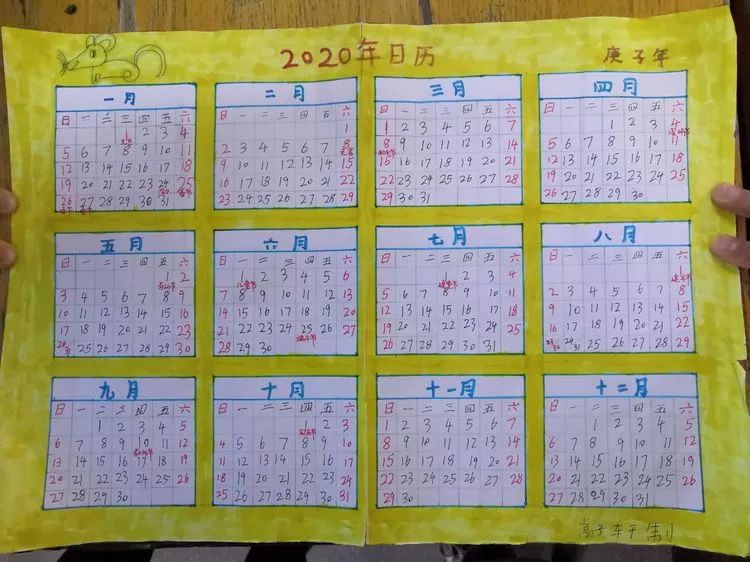 2020年日历
庚子年
一月
日 一 二 三 四 五 六
1 2 3 4
元旦
5 6 7 8 9 10 11
12 13 14 15 16 17 18
19 20 21 22 23 24 25
除夕 春节
26 27 28 29 30 31
春节 春节
二月
日 一 二 三 四 五 六
1
2 3 4 5 6 7 8
元宵
9 10 11 12 13 14 15
16 17 18 19 20 21 22
23 24 25 26 27 28 29
三月
日 一 二 三 四 五 六
1 2 3 4 5 6 7
8 9 10 11 12 13 14
妇女节
15 16 17 18 19 20 21
22 23 24 25 26 27 28
29 30 31
四月
日 一 二 三 四 五 六
1 2 3 4
清明节
5 6 7 8 9 10 11
12 13 14 15 16 17 18
19 20 21 22 23 24 25
26 27 28 29 30
五月
日 一 二 三 四 五 六
1 2
劳动节
3 4 5 6 7 8 9
10 11 12 13 14 15 16
17 18 19 20 21 22 23
24 31 25 26 27 28 29 30
六月
日 一 二 三 四 五 六
1 2 3 4 5 6
儿童节
7 8 9 10 11 12 13
14 15 16 17 18 19 20
21 22 23 24 25 26 27
端午节
28 29 30
七月
日 一 二 三 四 五 六
1 2 3 4
建党节
5 6 7 8 9 10 11
12 13 14 15 16 17 18
19 20 21 22 23 24 25
26 27 28 29 30 31
八月
日 一 二 三 四 五 六
1
建军节
2 3 4 5 6 7 8
9 10 11 12 13 14 15
16 17 18 19 20 21 22
23 30 24 31 25 26 27 28 29
九月
日 一 二 三 四 五 六
1 2 3 4 5
6 7 8 9 10 11 12
教师节
13 14 15 16 17 18 19
20 21 22 23 24 25 26
27 28 29 30
十月
日 一 二 三 四 五 六
1 2 3
国庆节
4 5 6 7 8 9 10
11 12 13 14 15 16 17
18 19 20 21 22 23 24
25 26 27 28 29 30 31
十一月
日 一 二 三 四 五 六
1 2 3 4 5 6 7
8 9 10 11 12 13 14
15 16 17 18 19 20 21
22 23 24 25 26 27 28
29 30
十二月
日 一 二 三 四 五 六
1 2 3 4 5
6 7 8 9 10 11 12
13 14 15 16 17 18 19
20 21 22 23 24 25 26
27 28 29 30 31